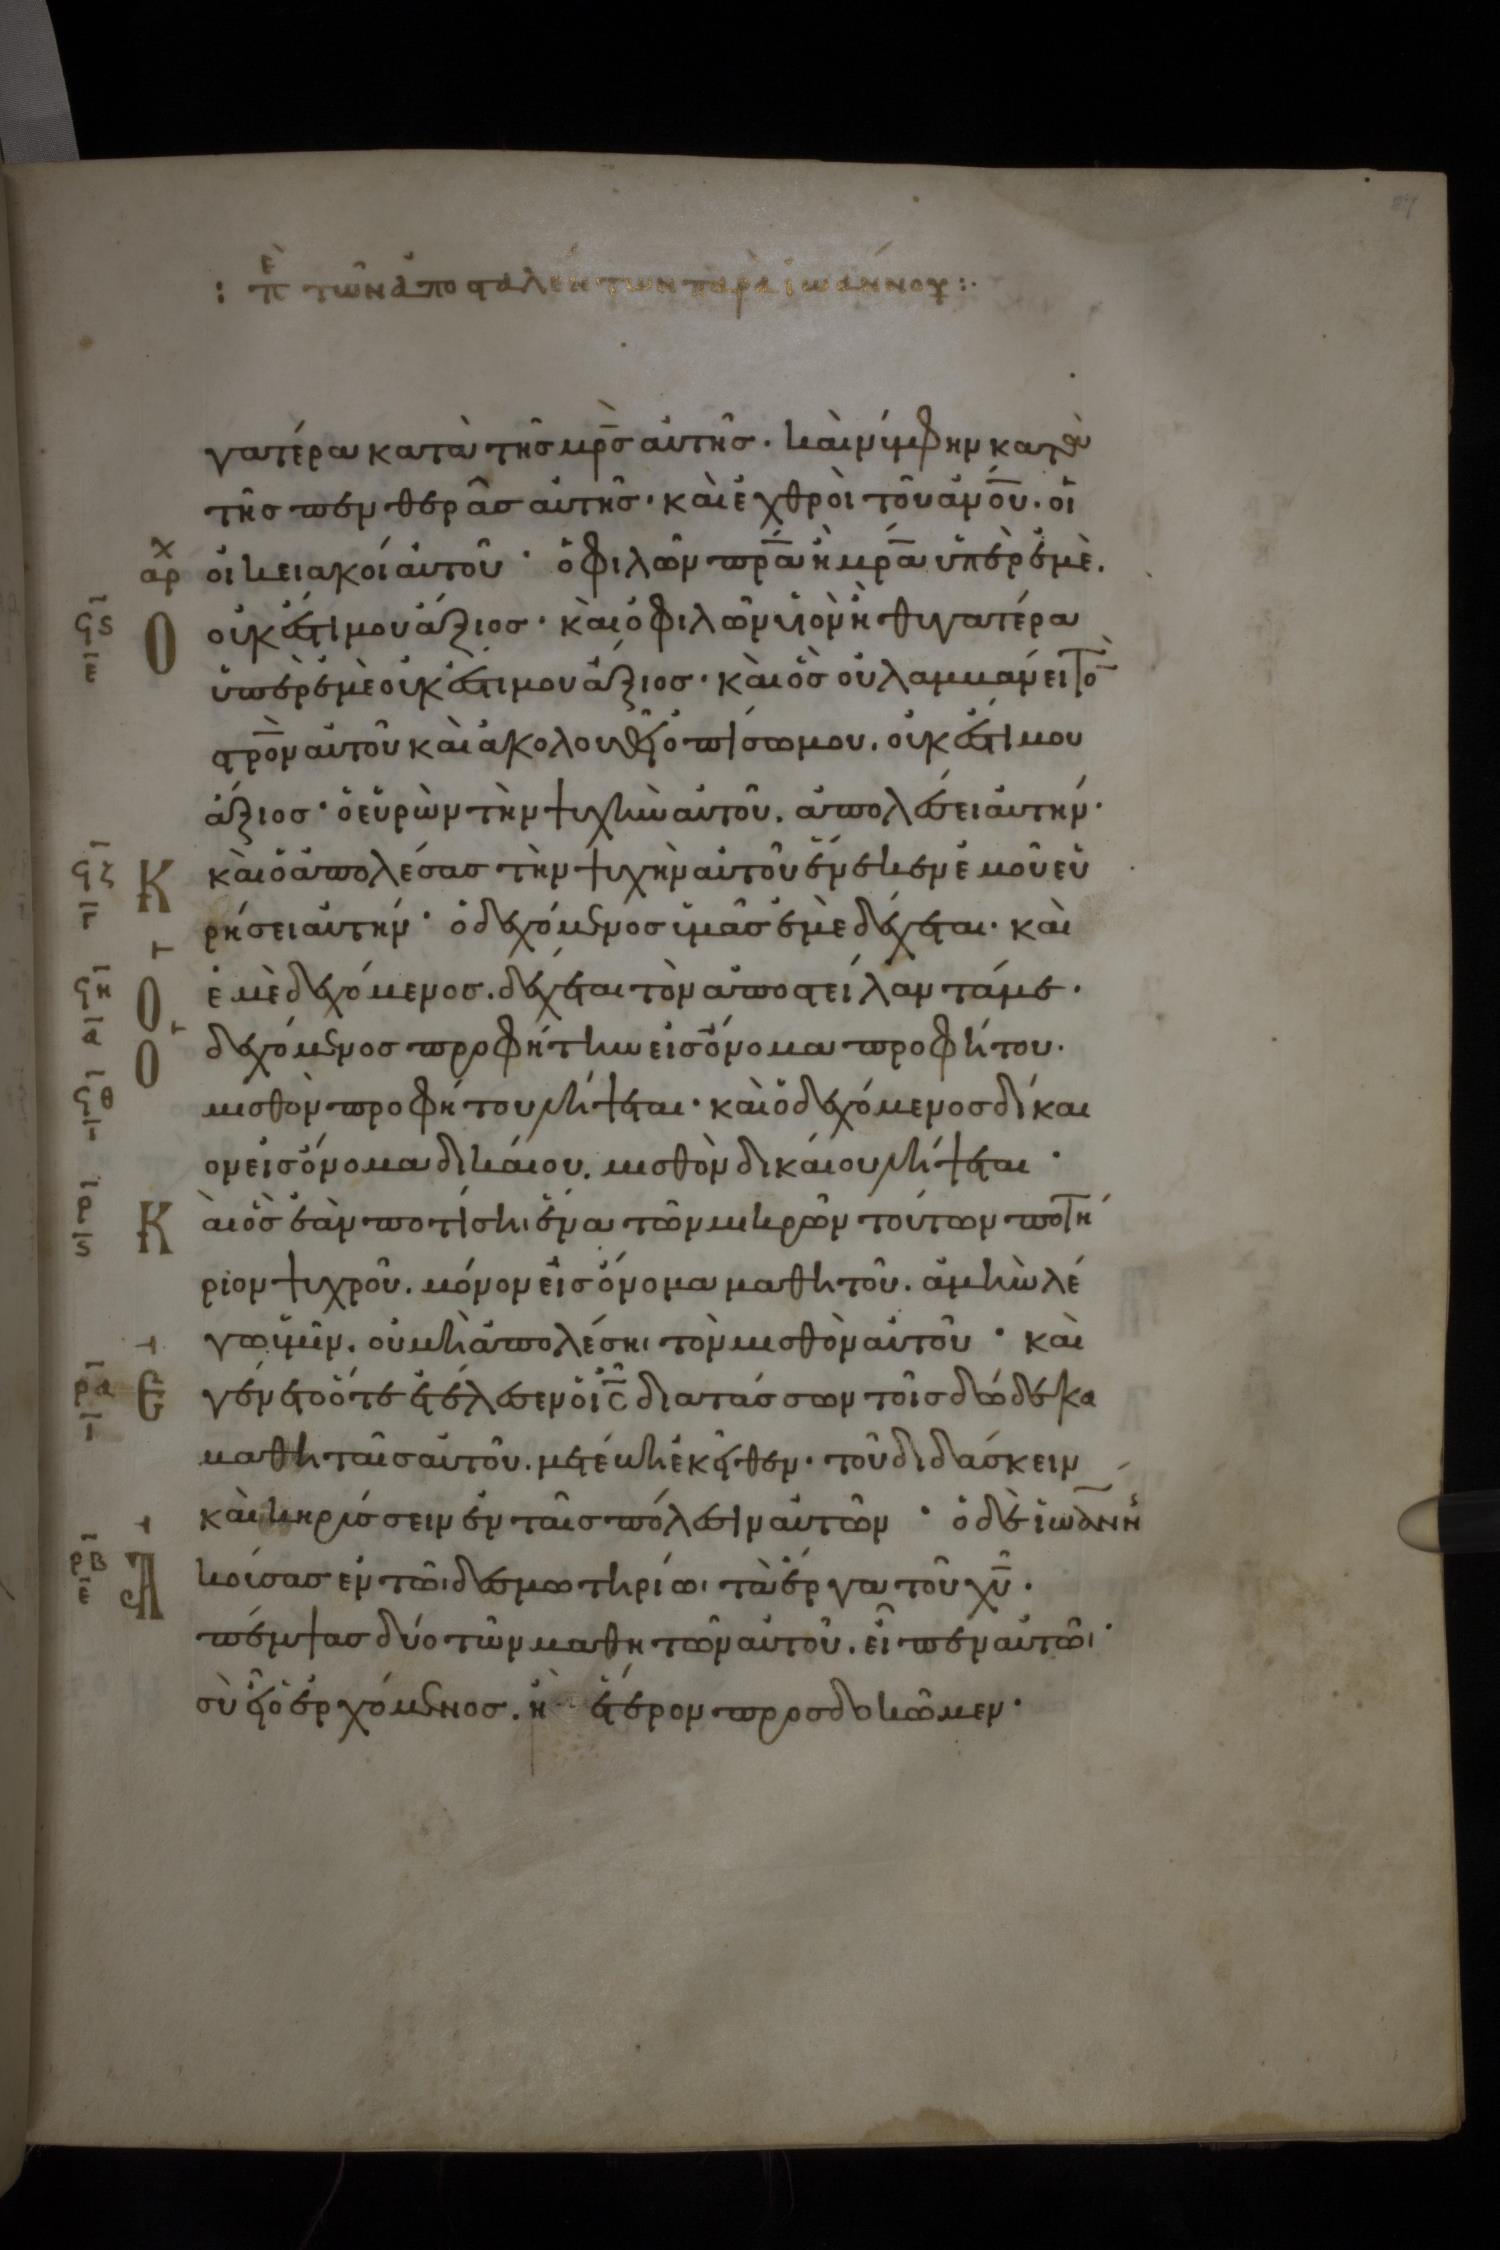 : πὲ τῶν ἀποσταλέντων παρὰ ἰωάννου :·
γατέρα κατὰ τῆς μρ̅ς αὐτῆς· καὶ νύμφην κατὰ
τῆς πενθερᾶς αὐτῆς· καὶ ἐχθροὶ τοῦ ἀν̅ου. οἱ
αρχ οἰκειακοί αὐτοῦ· ὁ φιλῶν πρ̅α ἢ μρ̅α ὑπὲρ ἐμὲ.
ϟϛ ε Ο οὐκ ἔστι μου ἄξιος· καὶ ὁ φιλῶν υἱὸν ἢ θυγατέρα
ὑπὲρ ἐμὲ οὐκ ἔστι μου ἄξιος· καὶ ὃς οὐ λαμβάνει το̅
στρ̅ον αὐτοῦ καὶ ἀκολουθεῖ ὀπίσω μου. οὐκ ἔστι μου
ἄξιος· ὁ εὑρὼν τὴν ψυχὴν αὐτοῦ. ἀπολέσει αὐτήν·
ϟζ γ Κ καὶ ὁ ἀπολέσας τὴν ψυχὴν αὐτοῦ ἕνεκεν ἐμοῦ εὑ
ρήσει αὐτήν· ὁ δεχόμενος ὑμᾶς ἐμὲ δέχεται· καὶ
ϟη α Ο ἐμὲ δεχόμενος. δέχεται τὸν ἀποστείλαντά με·
Ο δεχόμενος προφήτην εἰς ὄνομα προφήτου.
ϟθ ι μισθὸν προφήτου λήψεται· καὶ ὁ δεχόμενος δίκαι
ον εἰς ὄνομα δικαίου. μισθὸν δικαίου λήψεται·
ρ ϛ Κ αὶ ὃς ἐὰν ποτίσηι ἕνα τῶν μικρῶν τούτων ποτή
ριον ψυχροῦ. μόνον εἰς ὄνομα μαθητοῦ. ἀμὴν λέ
γω ὑμῖν. οὐ μὴ ἀπολέσηι τὸν μισθὸν αὐτοῦ· καὶ
ρα ι Ε γένετο ὅτε ἐτέλεσεν ὁ ι̅ς̅ διατάσσων τοῖς δώδεκα
μαθηταῖς αὐτοῦ. μετέβη ἐκεῖθεν· τοῦ διδάσκειν
καὶ κηρύσσειν ἐν ταῖς πόλεσιν αὐτῶν· ὁ δὲ ἰωάννης
ρβ ε Α κούσας ἐν τῶι δεσμωτηρίωι τὰ ἔργα τοῦ χ̅υ̅·
πέμψας δύο τῶν μαθητῶν αὐτοῦ. εἶπεν αὐτῶι·
σὺ εἶ ὁ ἐρχόμενος. ἢ ἕτερον προσδοκῶμεν·